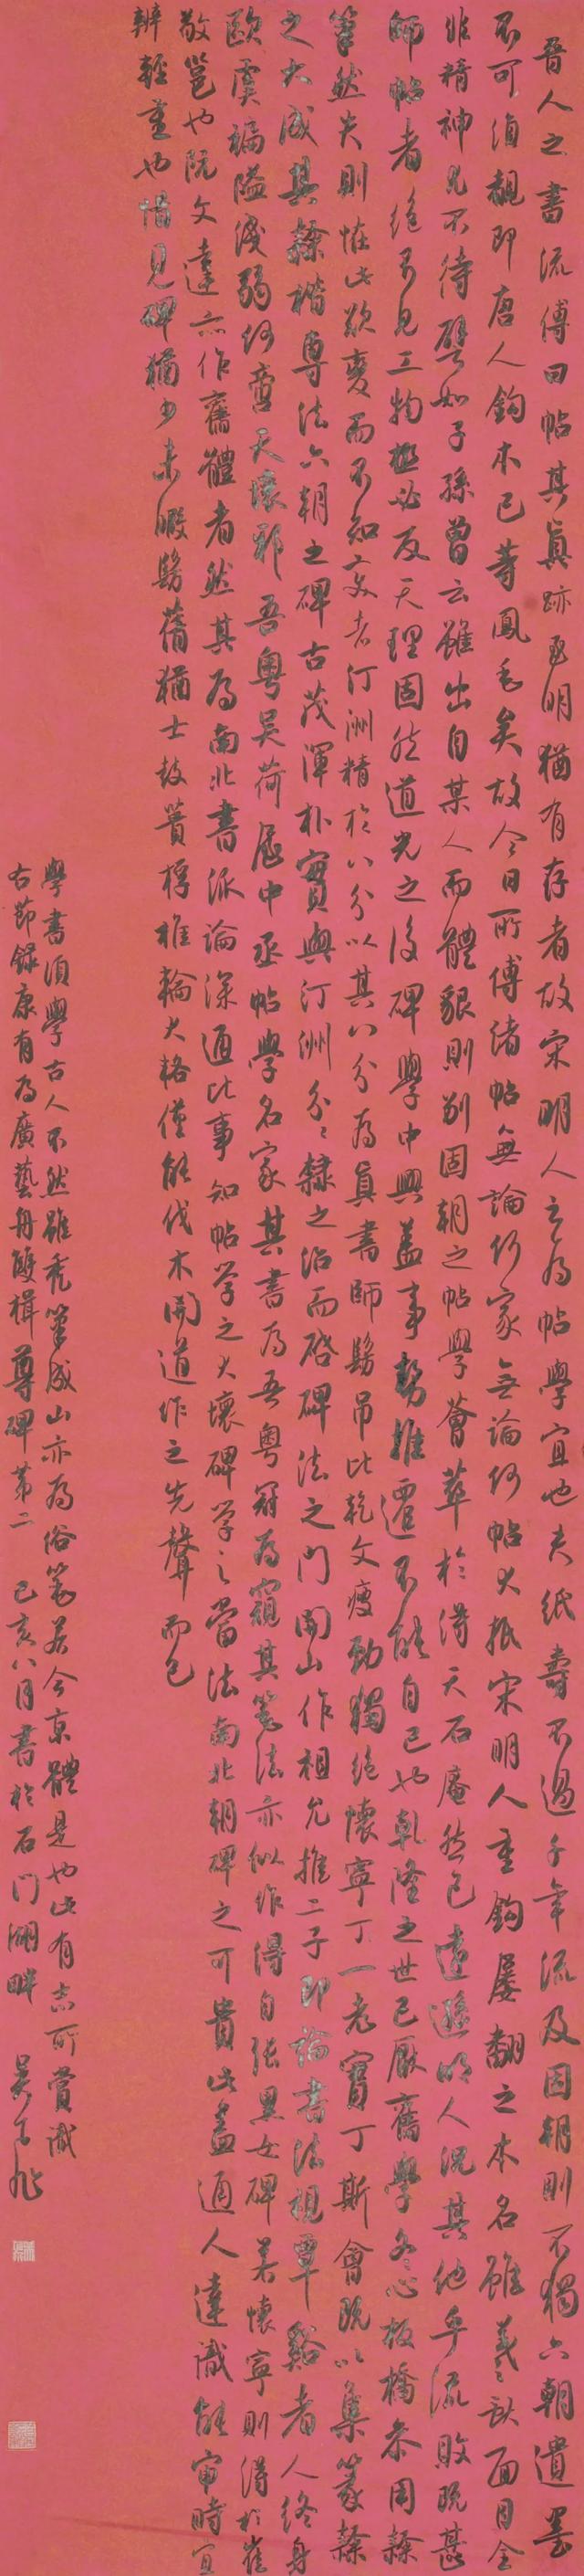 晋人之書流傳曰帖其真跡至明猶有存者故宋明人之為帖學宜也夫紙壽不過千年流及國朝則不獨六朝遺墨
不可復覩即唐人鈎本已等鳳毛矣故今日所傳諸帖無論何家無論何帖大抵宋明人重鈎屢翻之本名雖羲獻面目全
非精神尤不待譬如子孫曾云雖出自某人而體貌則别國朝之帖學薈萃於得天石庵然已遠遜明人況其他乎流敗既甚
師帖者絶不見工物極必反天理固然道光之後碑學中興蓋事勢推遷不能自已也乾隆之世已厭舊學冬心板橋參用隸
筆然失則怪此欲變而不知變者汀洲精於八分以其八分為真書師鶴吊比乾文瘦勁獨絶懷寧丁一老實丁斯會既以集篆隸
之大成其隸楷專法六朝之碑古茂渾朴實與汀洲分分隸之治而啓碑法之門開山作祖允推二子即論書法視覃谿者人終身
歐虞褊隘淺弱何啻天壤邪吾粤吴荷屋中丞帖學名家其書為吾粤冠為窺其筆法亦似作得自張黑女碑若懷寧則得於崔
敬邕也阮文達亦作舊體者然其為南北書派論深通此事知帖学之大壞碑学之當法南北朝碑之可貴此蓋通人達識能審時宜
辨輕重也惜見碑猶少未暇發蓓猶士鼓蕢桴椎輪大輅僅能伐木開道作之先聲而已
學書須學古人不然雖秃筆成山亦為俗筆若今京體是也此有志所賞識
右節録康有為廣藝舟雙楫尊碑第二 己亥八月書於石门湖畔 吴